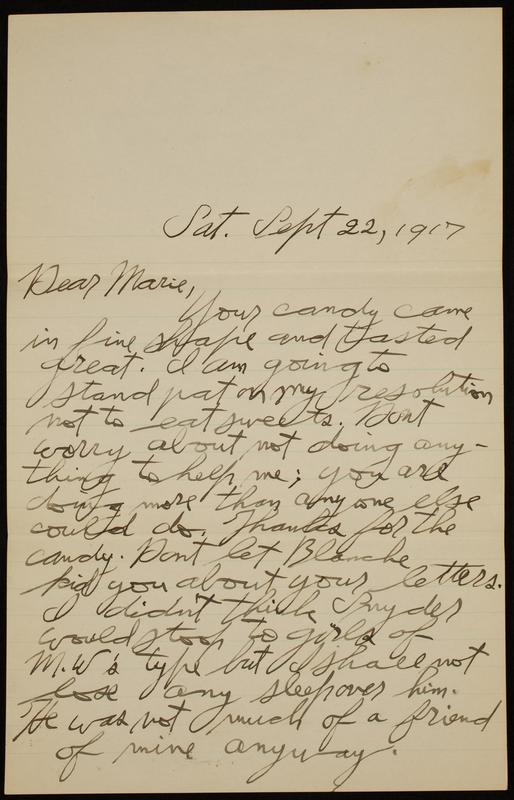 Sat. Sept 22, 1917
Dear Marie,
Your candy came
in fine shape and tasted
great. I am going to
stand pat on my resolution
not to eat sweets. Dont
worry about not doing any-
thing to help me; you are
doing more than anyone else
could do. Thanks for the
candy. Dont let Blanche
kid you about your letters.
I didn't think Snyder
would stoop to girls of
M.W's type but I shall not
lose any sleep over him.
He was not much of a friend
of mine anyway.